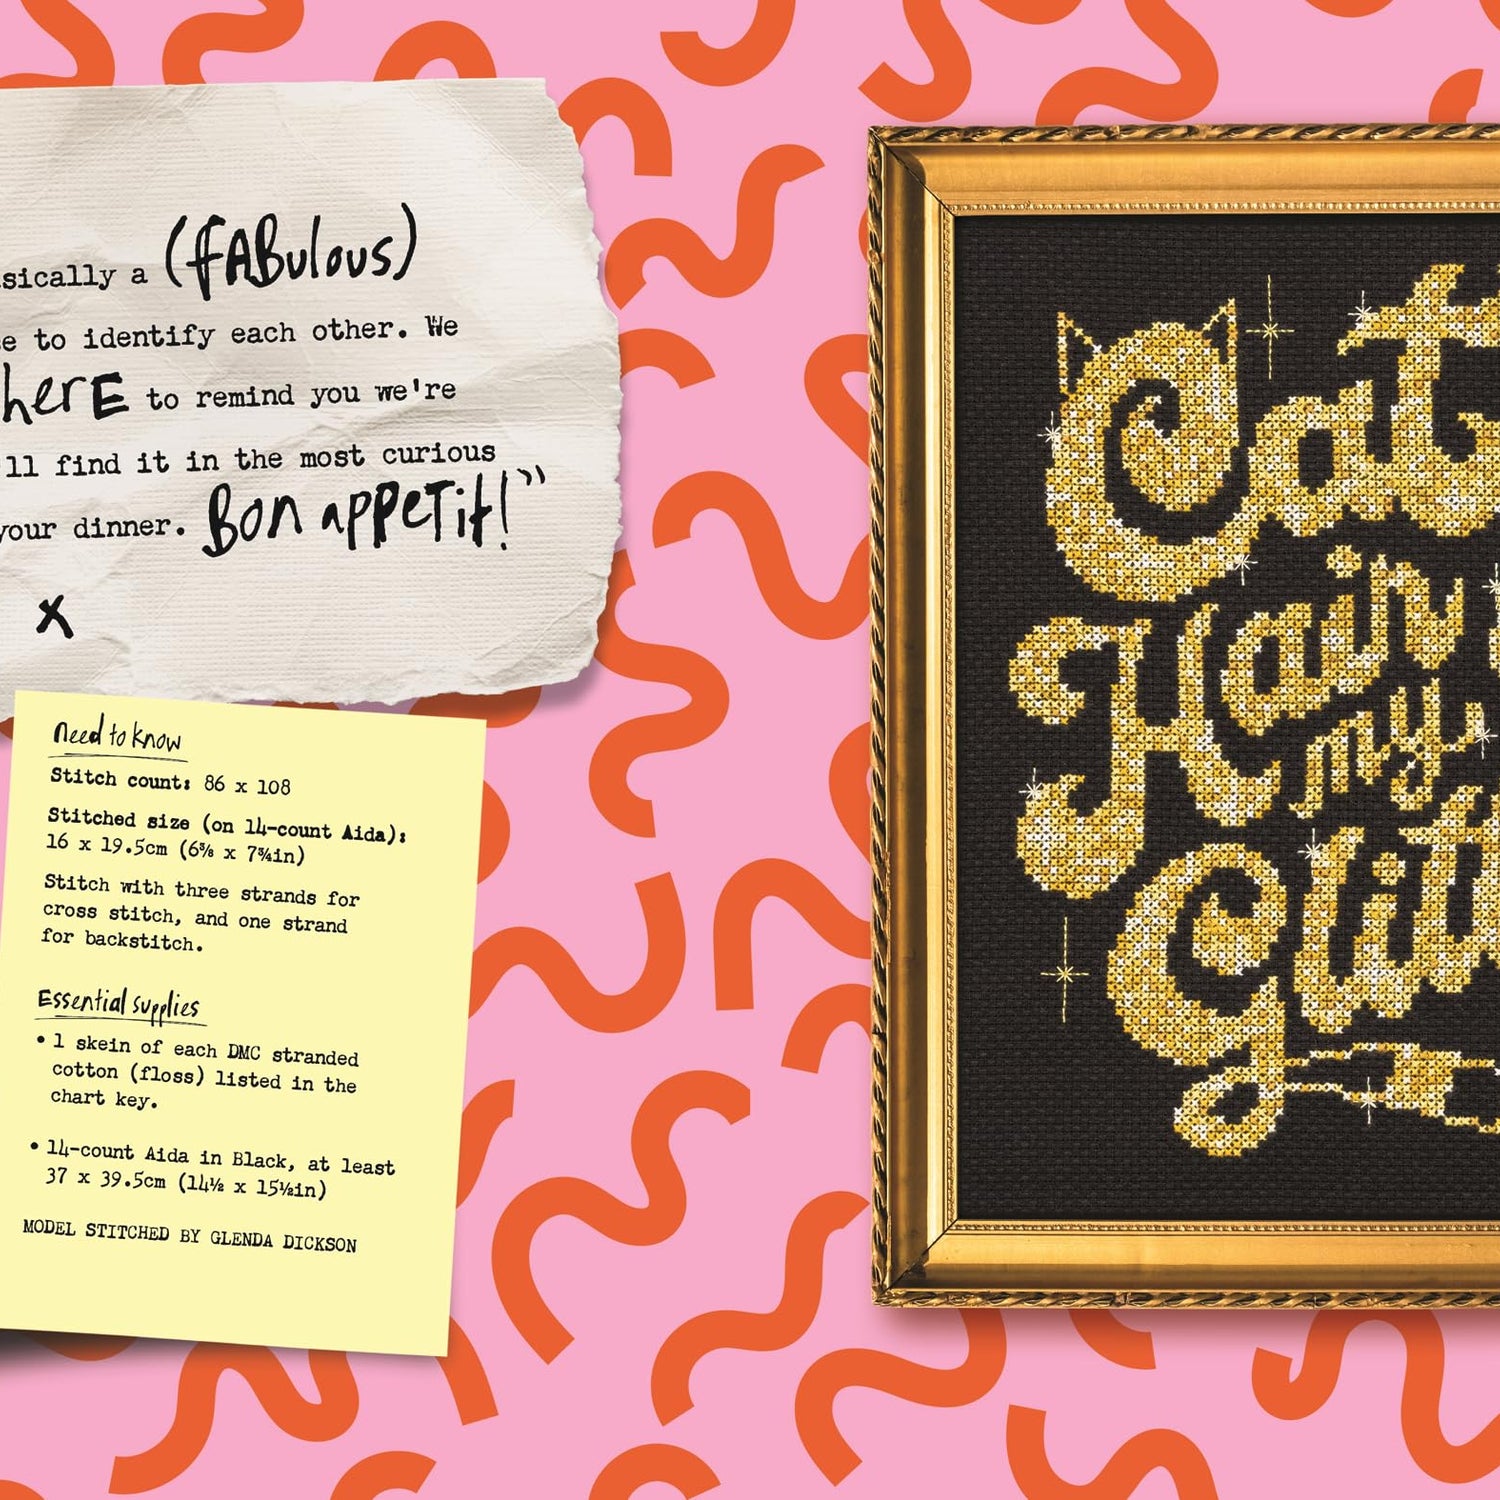 sically a (fABulous)
e to identify each other. We
here to remind you we're
'll find it in the most curious
your dinner. Bon appetit!”
x
need to know
Stitch count: 86 x 108
Stitched size (on 14-count Aida):
16 x 19.5cm (6⅜ x 7¾in)
Stitch with three strands for
cross stitch, and one strand
for backstitch.
Essential supplies
• 1 skein of each DMC stranded
cotton (floss) listed in the
chart key.
• 14-count Aida in Black, at least
37 x 39.5cm (14½ x 15½in)
MODEL STITCHED BY GLENDA DICKSON
Cat
Hair
my
Glitt